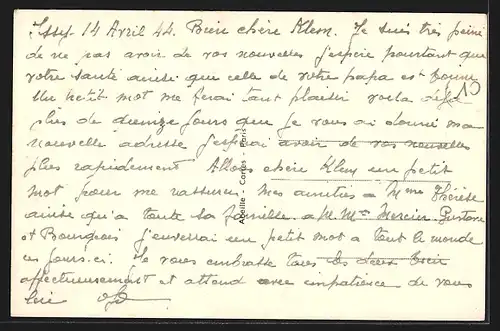 Issy 14 Avril 44. Bien chère Klem. Je suis très peiné
de ne pas avoir de vos nouvelles j'espère pourtant que
votre santé ainsi que celle de votre papa est bonne
Un petit mot me ferai tant plaisir voila déjà
plus de quinze jours que je vous ai donné ma
nouvelle adresse j'espérai avoir de vos nouvelles
plus rapidement Allons chère Klem un petit
mot pour me rassurer. Mes amitiés a Mme Thérèse
ainsi qu'a toute la famille a M. Me Mercier.
et Bourgeois j'enverrai un petit mot a tout le monde
ces jours.ci. Je vous embrasse tous les deux bien
affectueusement et attend avec impatience de vous
lire
Abeille - Cartes - Paris